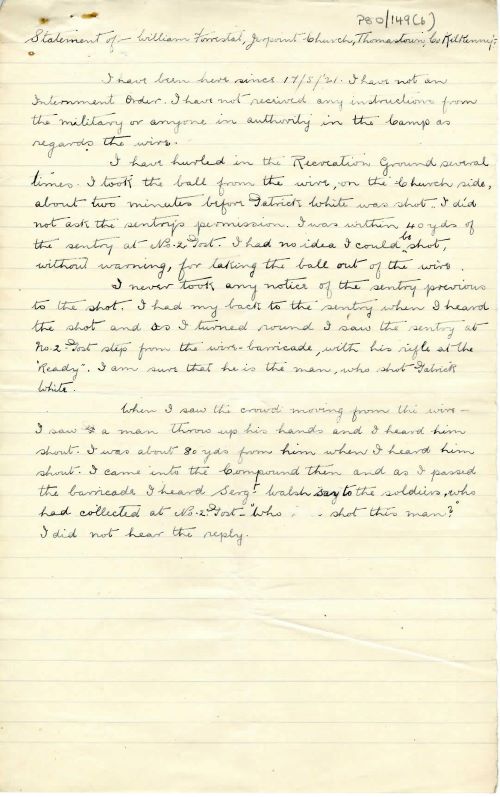 P80/149(6)
Statement of - William Forrestal, Jerpoint Church, Thomastown, Co Kilkenny.
I have been here since 17/5/21. I have not an
Internment Order. I have not received any instructions from
the military or anyone in authority in the Camp as
regards the wire.
I have hurled in the Recreation Ground several
times. I took the ball from the wire, on the Church side,
about two minutes before Patrick White was shot. I did
not ask the sentry's permission. I was within 40 yds of
the sentry at No. 2 Post. I had no idea I could be shot,
without warning, for taking the ball out of the wire.
I never took any notice of the sentry previous
to the shot. I had my back to the sentry when I heard
the shot and as I turned round I saw the sentry at
No. 2 Post step from the wire-barricade, with his rifle at the
"Ready". I am sure that he is the man, who shot Patrick
White.
When I saw the crowd moving from the wire -
I saw a man throw up his hands and I heard him
shout. I was about 80 yds from him when I heard him
shout. I came into the Compound then and as I passed
the barricade I heard Sergt Walsh say to the soldiers, who
had collected at No. 2 Post - "Who shot this man?"
I did not hear the reply.